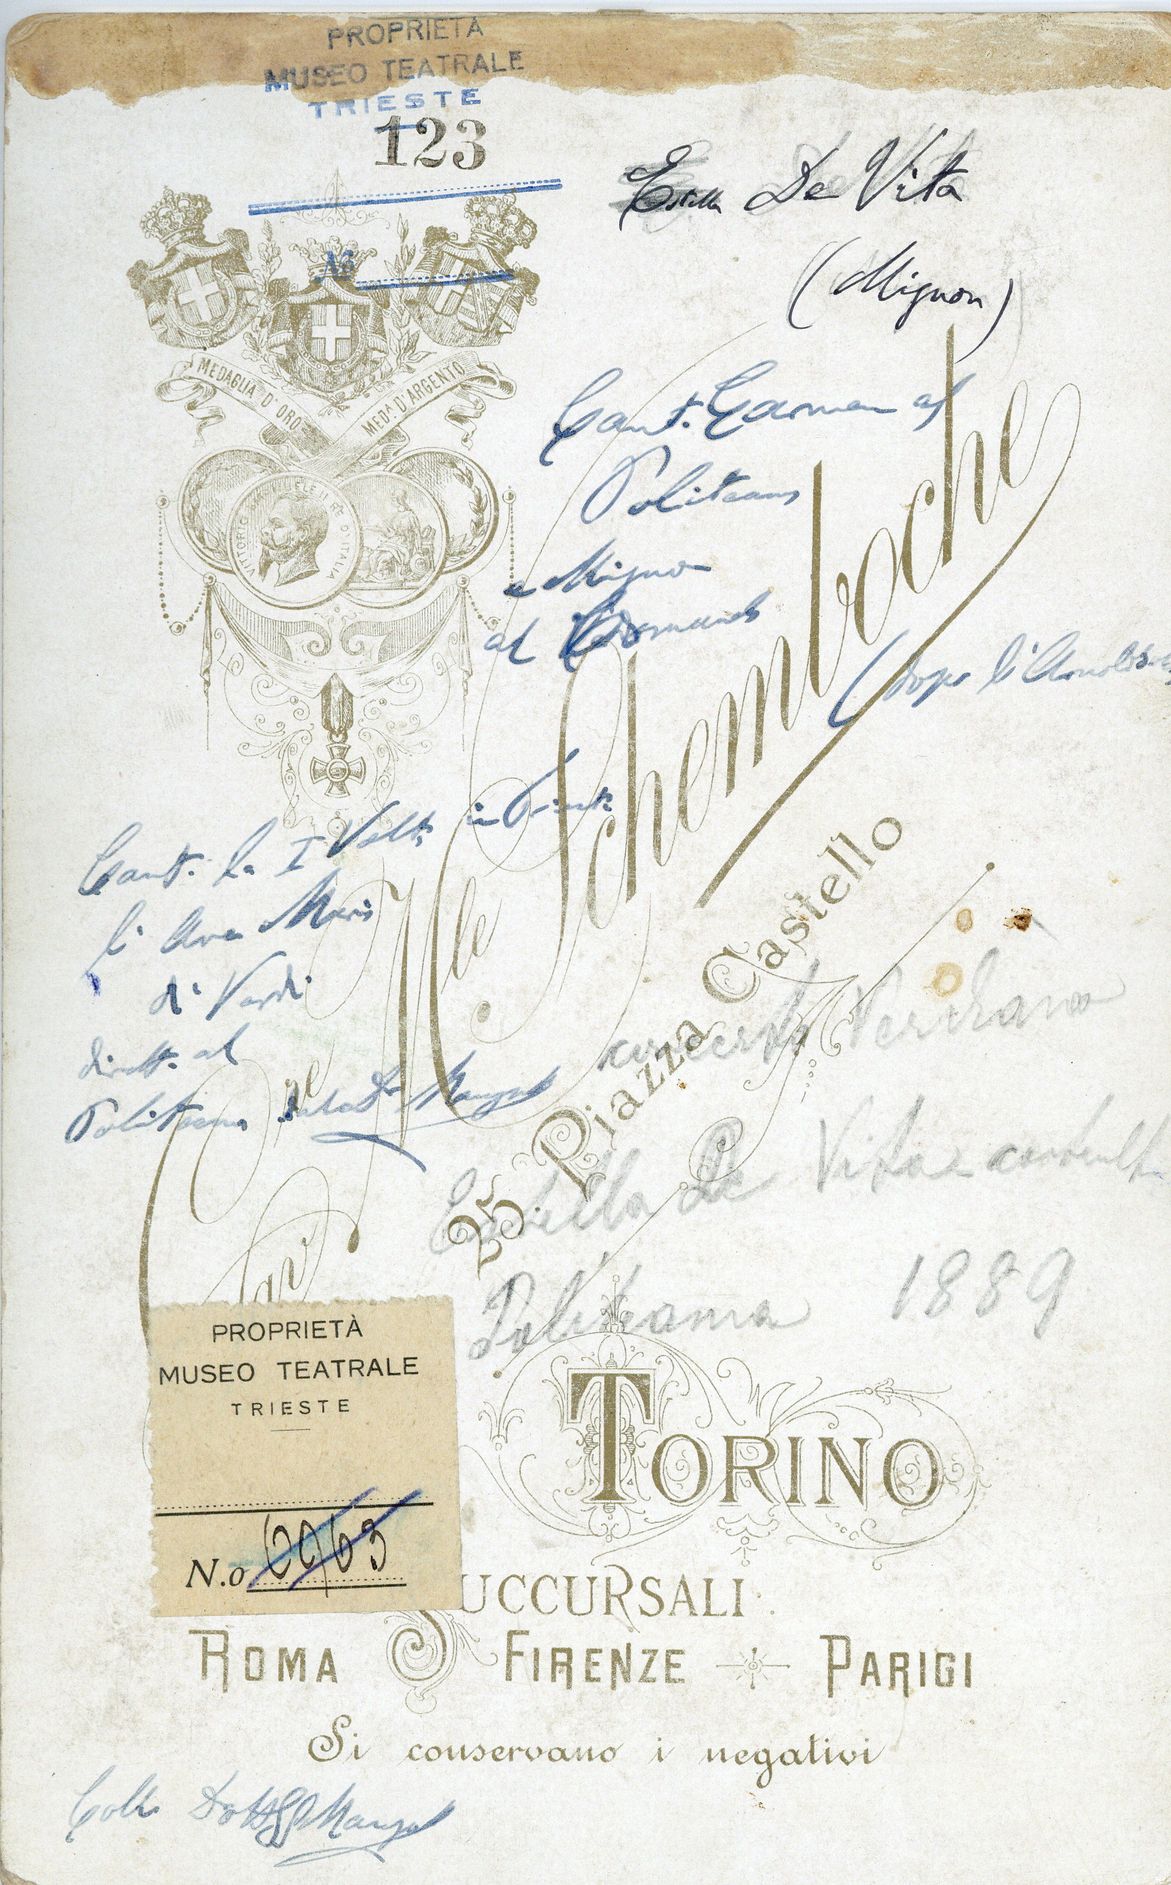 PROPRIETÀ
MUSEO TEATRALE
TRIESTE
123
No
Estella De Vita
(Mignon)
MEDAGLIA D'ORO
MEDA. D'ARGENTO
VITTORIO EMANUELE II RE D'ITALIA
Cant. Carmen al
Politeama
e Mignon
al
(dopo l'
Cant. la I Volta in Trieste
l'Ave Maria
di Verdi
dirett. al
Politeama
concerto Verdiano
Estella De Vita
Politeama 1889
Cav. Re Mle Schemboche
25. Piazza Castello
TORINO
PROPRIETÀ
MUSEO TEATRALE
TRIESTE
N.o
SUCCURSALI
ROMA FIRENZE PARIGI
Si conservano i negativi
Coll.